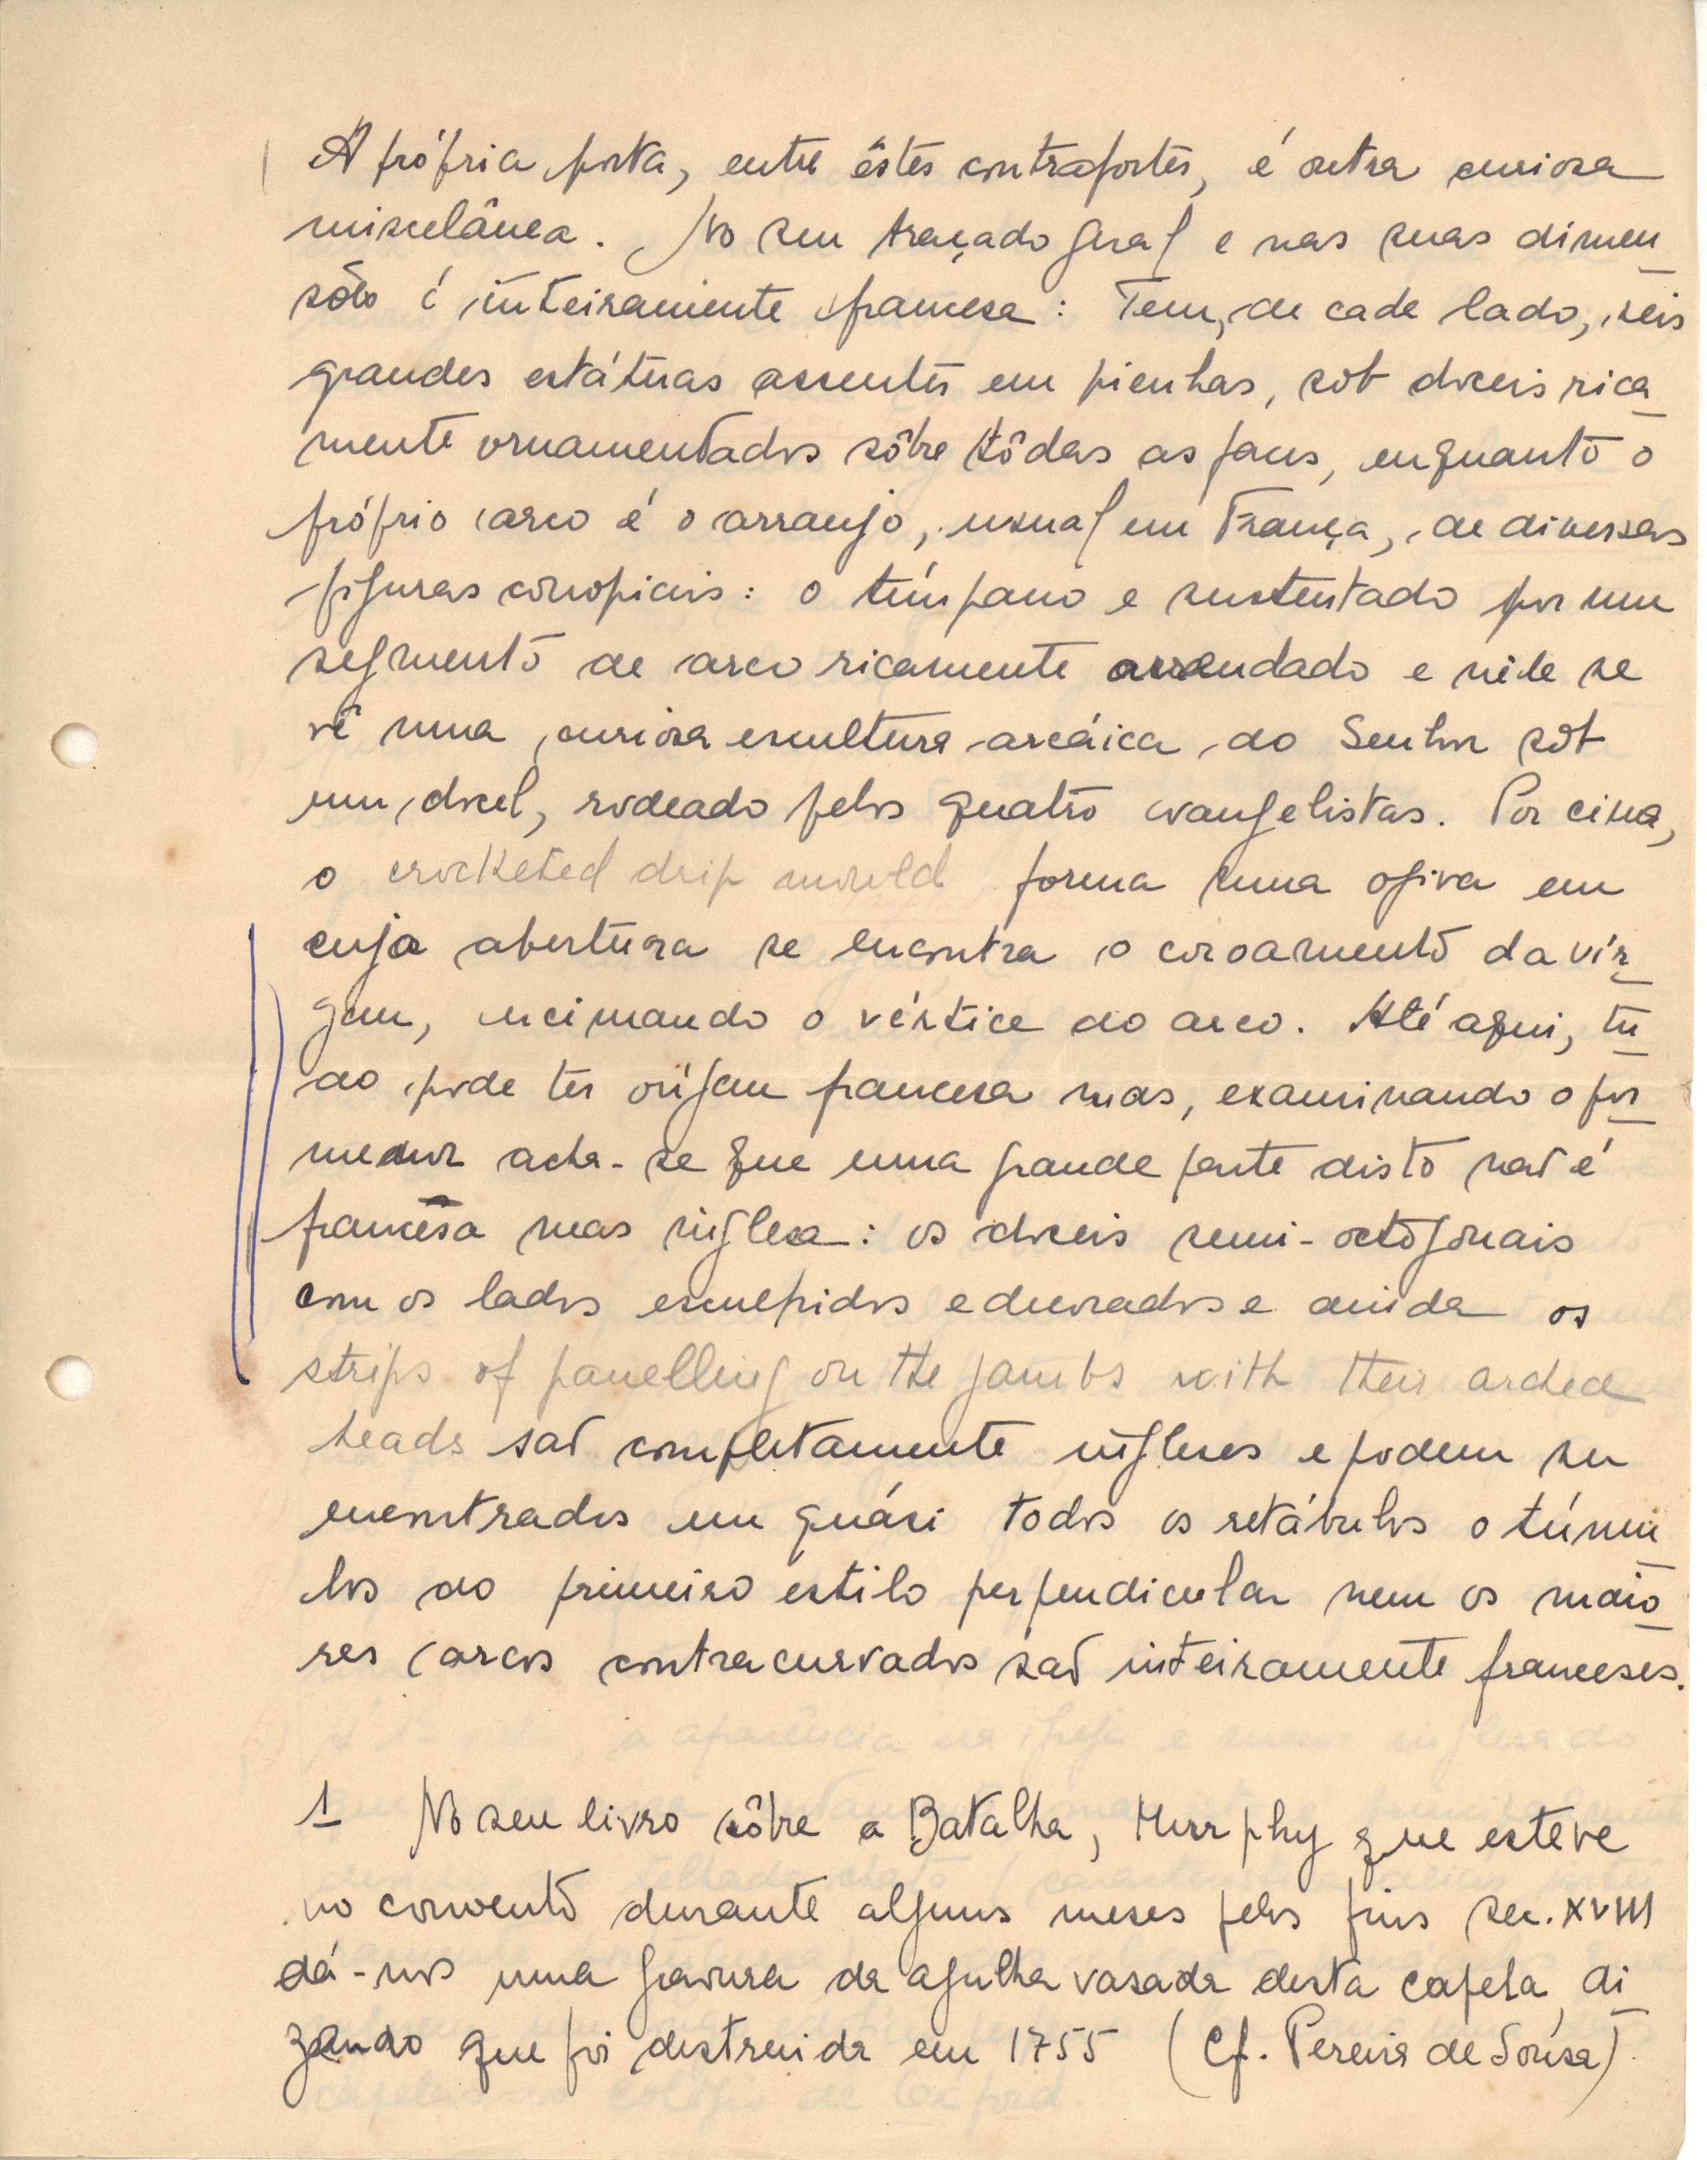 A própria porta, entre êstes contrafortes, é outra curiosa
miscelânea. No seu traçado geral e nas suas dimen
sões é inteiramente francesa: Tem, de cada lado, seis
grandes estátuas assentes em pienhas, sob doceis rica
mente ornamentados sôbre tôdas as faces, enquanto o
próprio arco é o arranjo, usual em França, de diversas
figuras conopiais: o tímpano e sustentado por um
segmento de arco ricamente arrendado e nêle se
vê uma curiosa escultura arcáica do Senhor sob
um docel, rodeado pelos quatro evangelistas. Por cima,
o crocketed drip mould forma uma ogiva em
cuja abertura se encontra o coroamento da vír
gem, encimando o vértice do arco. Até aqui, tu
do pode ter orígem francesa mas, examinando o por
menor acha-se que uma grande parte disto não é
francêsa mas inglesa: os doceis semi-octogonais
com os lados esculpidos e e ainda os
strips of panelling on the jambs with their arched
heads são completamente ingleses e podem ser
encontrados em quási todos os retábulos o túmu
los do primeiro estilo perpendicular nem os maio
res arcos contracurvados são inteiramente franceses.
1 No seu livro sôbre a Batalha, Murphy que esteve
no convento durante alguns meses pelos fins sec. XVIII
dá-nos uma gravura da agulha vasada desta capela, di
zendo que foi destruida em 1755 (Cf. Pereira de Sousa)